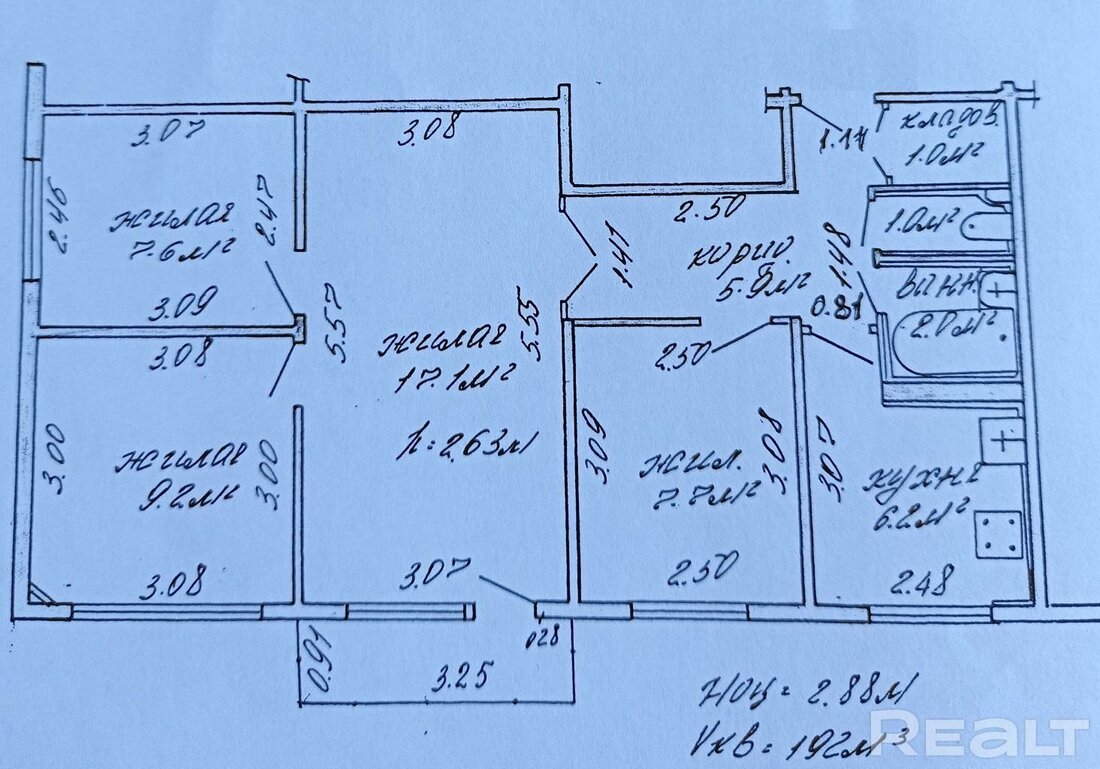 3.07
3.08
кладов.
1.0м²
1.17
2.46
жилая
7.6м²
2.47
2.50
1.0м²
1.41
коридо.
5.9м²
1.48
ванн.
2.0м²
0.81
3.09
3.08
5.57
жилая
17.1м²
5.55
2.50
h=2.63м
3.00
жилая
9.2м²
3.00
3.09
жил.
7.7м²
3.08
3.07
кухня
6.2м²
3.08
3.07
2.50
2.48
0.28
0.91
3.25
Hоц = 2.88м
Vкв = 192м³
REALT